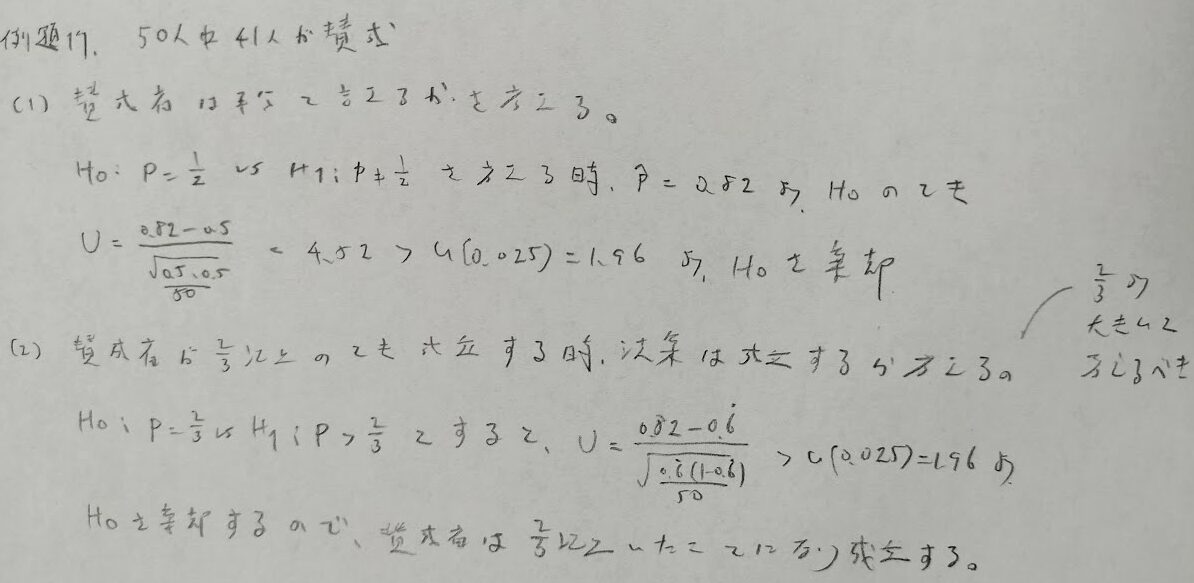 例題17. 50人中41人が賛成
(1) 賛成者は半分と言えるか.を考える。
H₀: P=1/2 vs H₁: P≠1/2 を考える時、P̂ = 0.82 より, H₀ のとき
U = (0.82-0.5)/√(0.5・0.5/50) = 4.52 > u(0.025)=1.96 より, H₀ を棄却
(2) 賛成者が 2/3 以上のとき成立する時、法案は成立するか考える。
2/3 より
大きいと
考えるべき
H₀: P=2/3 vs H₁: P>2/3 とすると、U = (0.82-0.6̇)/√(0.6̇(1-0.6̇)/50) > u(0.025)=1.96 より,
H₀を棄却するので、賛成者は 2/3 以上いたことになり成立する。